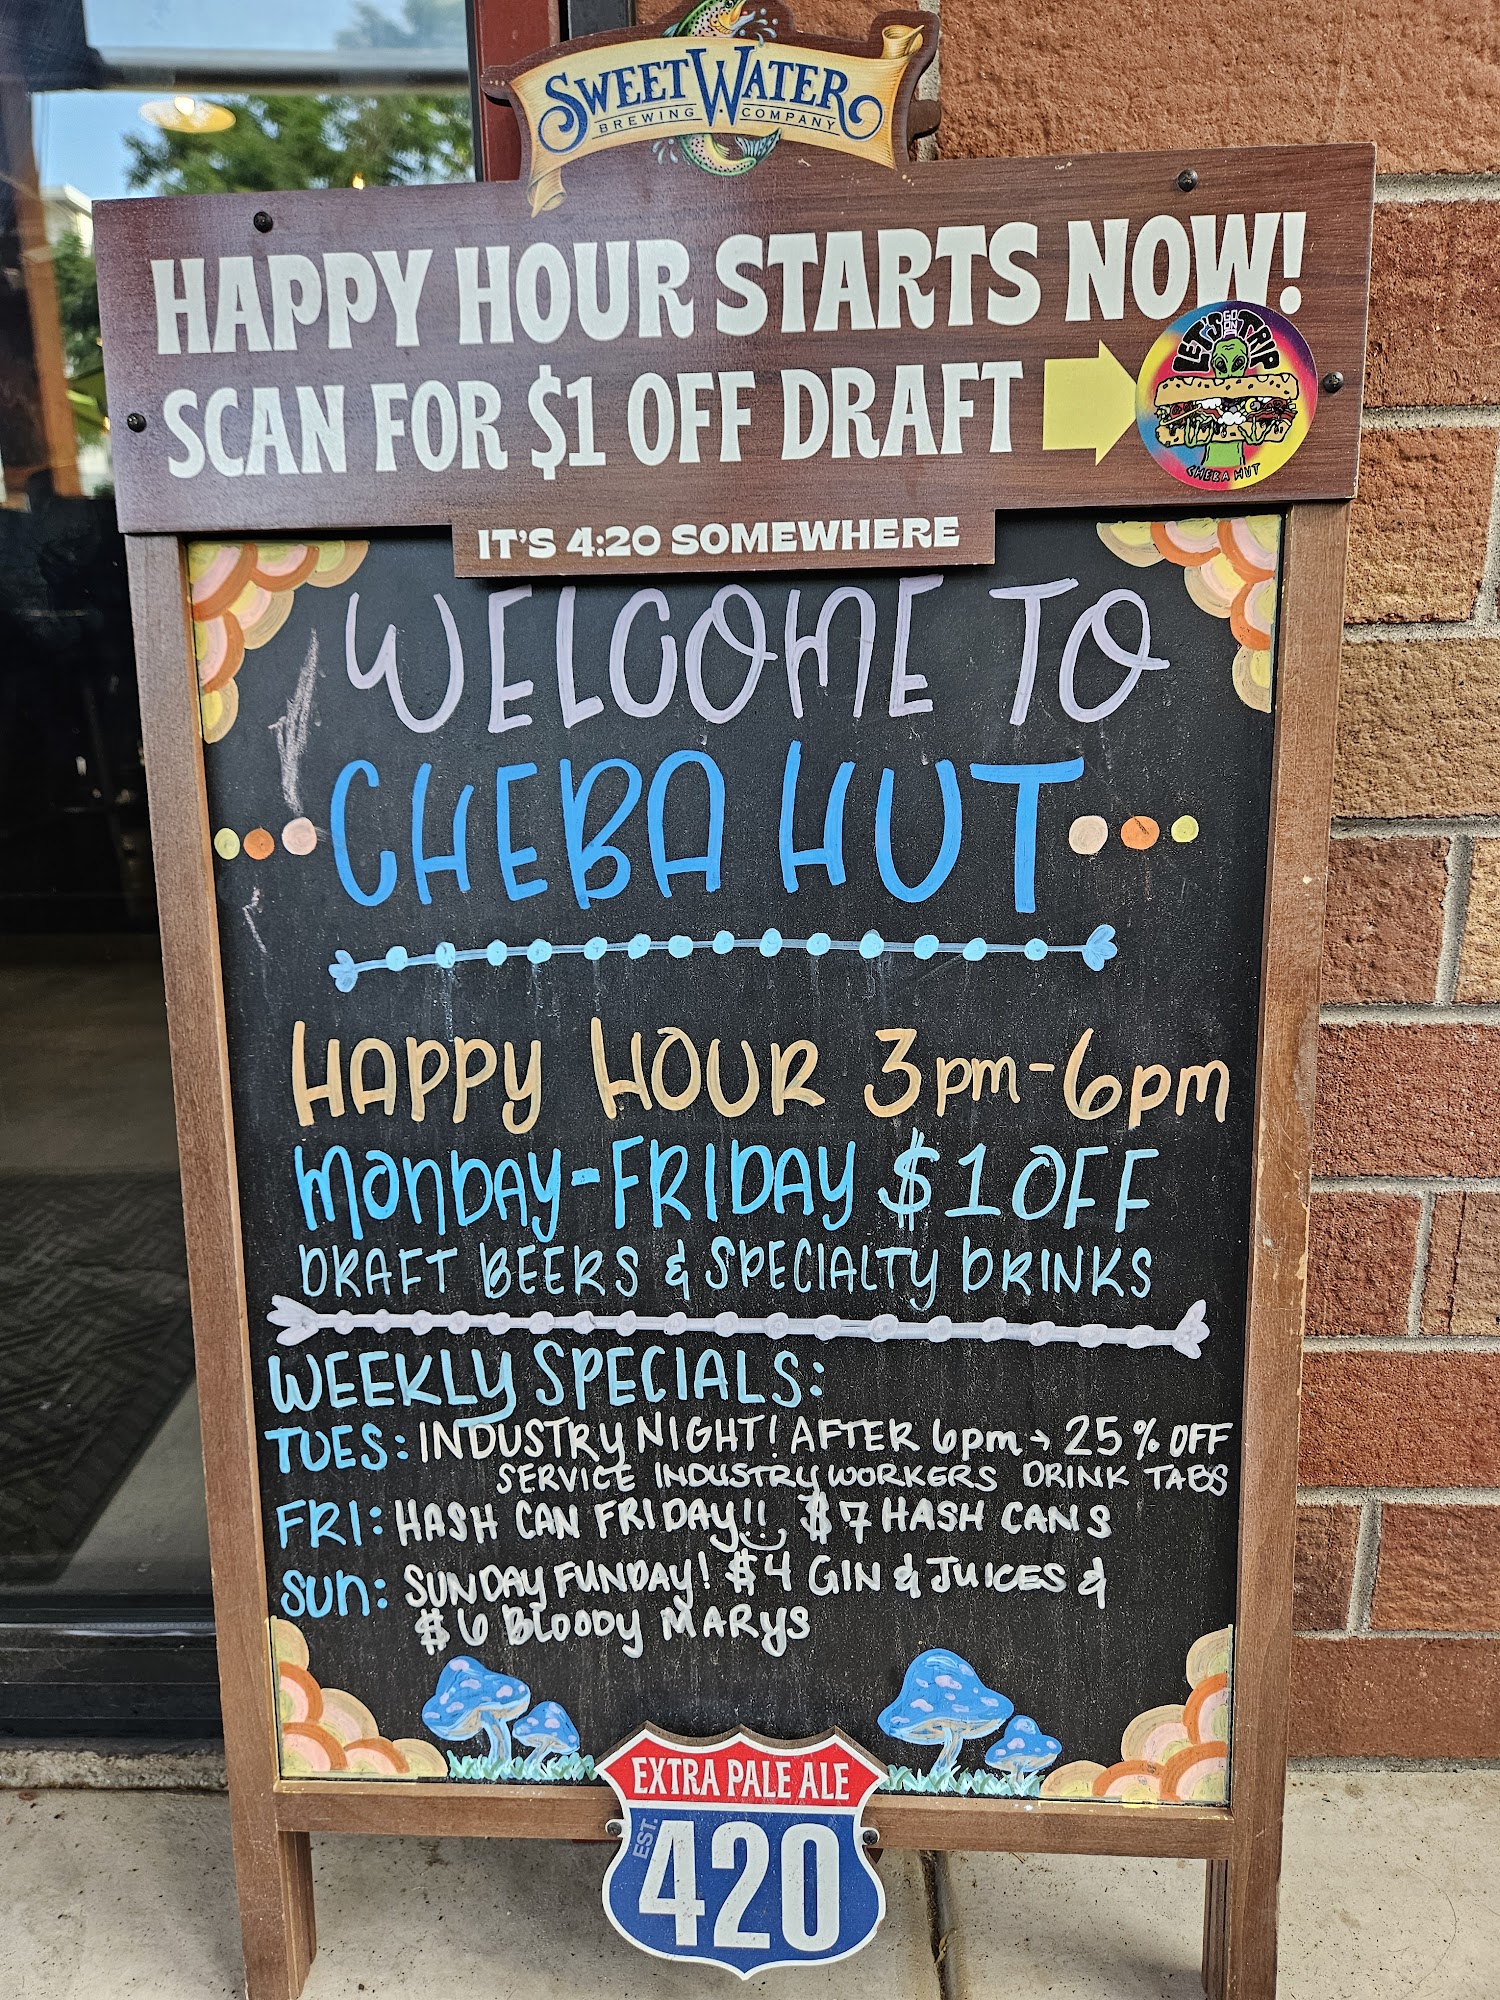 SWEETWATER
BREWING COMPANY
HAPPY HOUR STARTS NOW!
SCAN FOR $1 OFF DRAFT
LET'S GO ON A TRIP
CHEBA HUT
IT'S 4:20 SOMEWHERE
WELCOME TO
CHEBA HUT
HAPPY HOUR 3pm-6pm
MONDAY-FRIDAY $1 OFF
DRAFT BEERS & SPECIALTY DRINKS
WEEKLY SPECIALS:
TUES: INDUSTRY NIGHT! AFTER 6pm → 25% OFF
SERVICE INDUSTRY WORKERS DRINK TABS
FRI: HASH CAN FRIDAY!! $7 HASH CANS
SUN: SUNDAY FUNDAY! $4 GIN & JUICES &
$6 BLOODY MARYS
EXTRA PALE ALE
EST. 420